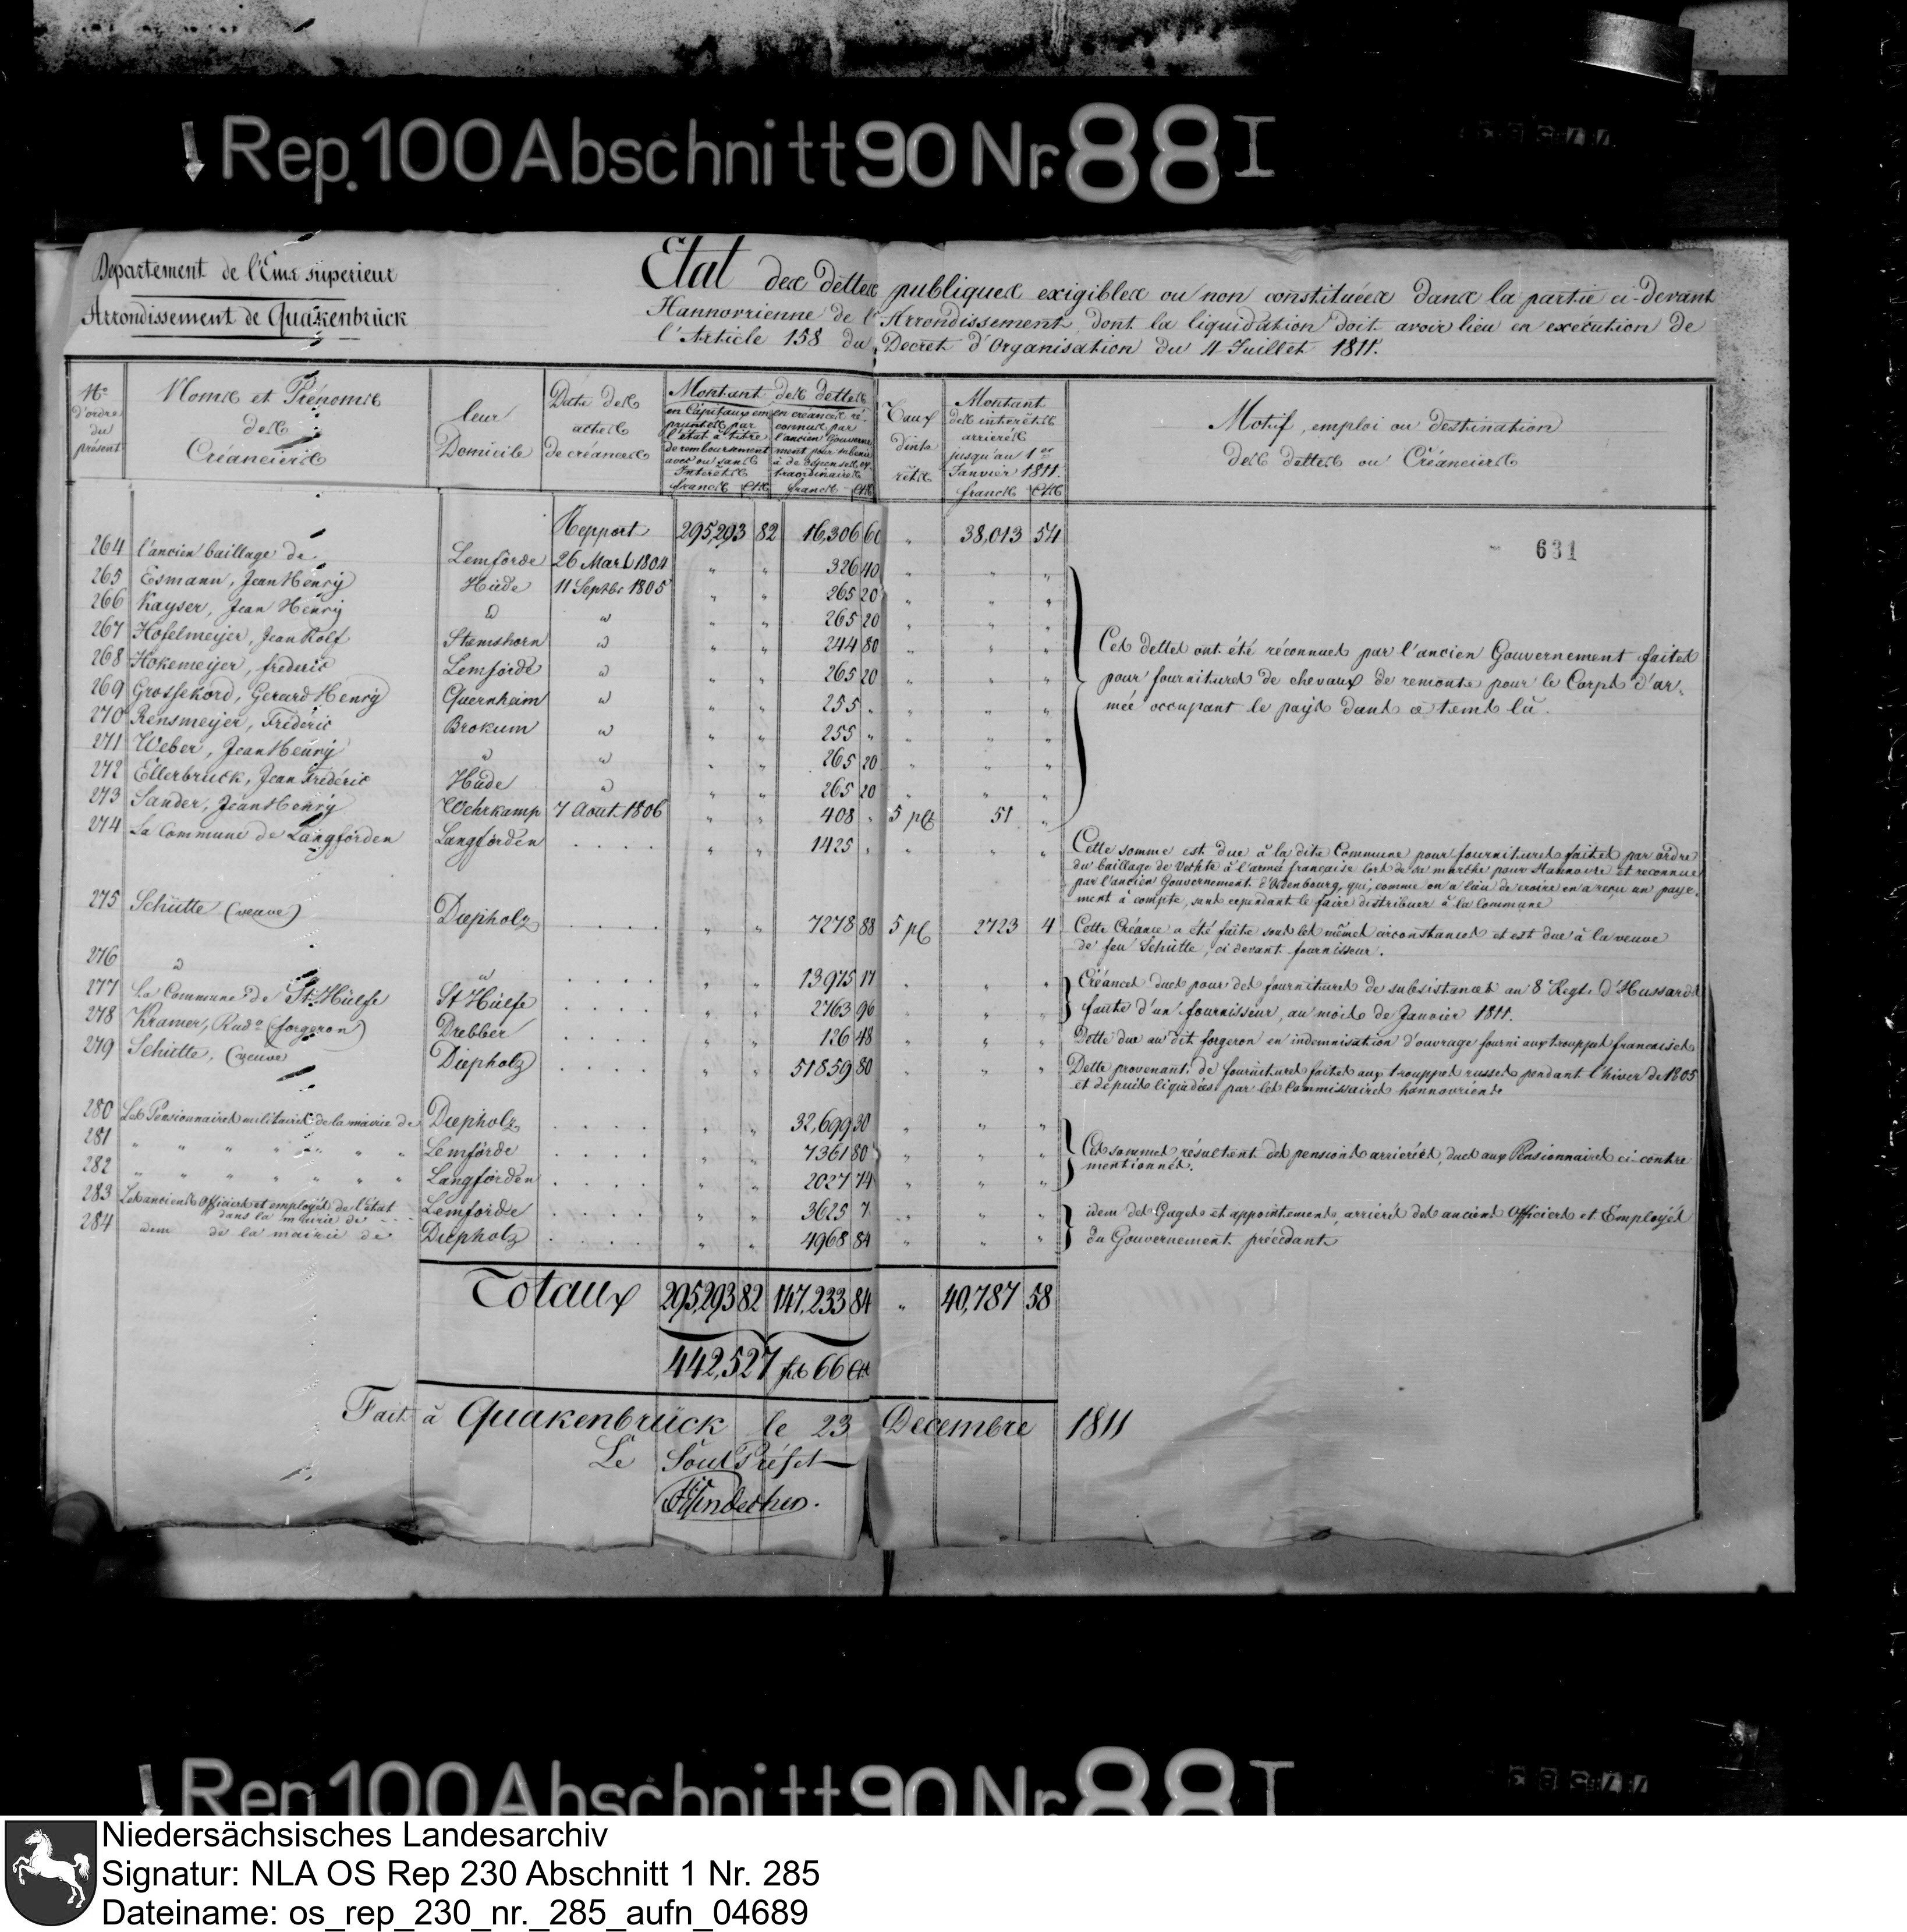 Rep. 100 Abschnitt 90 Nr. 88 I
Departement de l'Ems superieur
Arrondissement de Quakenbrück
Etat des dettes publiques exigibles ou non constituées dans la partie ci-devant
Hannovrienne de l'Arrondissement, dont la liquidation doit avoir lieu en exécution de
l'Article 158 du Decret d'Organisation du 4 Juillet 1811.
Nos d'ordre du présent
Noms et Prénoms des Créanciers
leur Domicile
Date des actes de créances
Montant des dettes
en Capitaux empruntés par l'état à titre de remboursement avec ou sans Intérêts
francs cts
en créances reconnues par l'ancien Gouvernement pour à de dépenses extraordinaires
francs cts
Taux d'intérêts
Montant des interêts arrierés jusqu'au 1er Janvier 1811
francs cts
Motif, emploi ou destination
des dettes ou Créanciers
Report 295,293 82 16,306 60 " 38,013 54
631
264 l'ancien baillage de Lemförde 26 Mars 1804 " " 326 40 " " "
265 Esmann, Jean Henry Hüde 11 Septbr 1805 " " 265 20 " " "
266 Kayser, Jean Henry " " " " 265 20 " " "
267 Hofelmeijer, Jean Rolf Stemshorn " " " 244 80 " " "
268 Hokemeijer, frederic Lemförde " " " 265 20 " " "
269 Grossekord, Gerard Henry Quernheim " " " 255 " " " "
270 Rensmeijer, Frédéric Brokum " " " 255 " " " "
271 Weber, Jean Henry " " " " 265 20 " " "
272 Ellerbruck, Jean Frédéric Hüde " " " 265 20 " " "
273 Sander, Jean Henry Wehrkamp 7 Aout 1806 " " 408 " 5 pCt 51 "
Ces dettes ont été réconnues par l'ancien Gouvernement faites
pour fournitures de chevaux de remonte pour le Corps d'ar-
mée occupant le pays dans ce tems là.
274 La Commune de Langförden Langförden . . . . " " 1425 " " " "
Cette somme est due à la dite Commune pour fournitures faites par ordre
du baillage de Vechte à l'armée française lors de sa marche pour Hannovre et reconnue
par l'ancien Gouvernement d'Oldenbourg, qui, comme on a lieu de croire en a reçu un paye-
ment à compte, sans cependant le faire distribuer à la Commune
275 Schütte (veuve) Diepholz . . . . " " 7278 88 5 pC 2723 4
Cette Créance a été faite sous les mêmes circonstances et est due à la veuve
de feu Schütte, ci devant fournisseur.
276 " " . . . . " " 13975 17 " " "
277 La Commune de St. Hülfe St Hülfe . . . . " " 2763 96 " " "
Créances dues pour des fournitures de subsistances au 8 Regt. d'Hussards
faute d'un fournisseur, au mois de Janvier 1811.
278 Kramer, Rudo (forgeron) Drebber . . . . " " 126 48 " " "
Dette due au dit forgeron en indemnisation d'ouvrage fourni aux trouppes francaises
279 Schütte, (veuve) Diepholz . . . . " " 51859 80 " " "
Dette provenant de fournitures faites aux trouppes russes pendant l'hiver de 1805
et depuis liquidées par les Commissaires hannovriens
280 Les Pensionnaires militaires de la mairie de Diepholz . . . . " " 32,699 30 " " "
281 " " " " " " " Lemförde . . . . " " 7361 80 " " "
282 " " " " " " " Langförden . . . . " " 2027 74 " " "
Ces sommes résultent des pensions arrierées, dues aux Pensionnaires ci-contre
mentionnés.
283 Les anciens Officiers et employés de l'état dans la mairie de Lemförde . . . . " " 3625 7 " " "
284 idem de la mairie de Diepholz . . . . " " 4968 84 " " "
idem des Gages et appointements, arrierés des anciens Officiers et Employés
du Gouvernement précédant
Totaux 295,293 82 147,233 84 " 40,787 58
442,527 frs 66 cts
Fait à Quakenbrück le 23 Decembre 1811
Le Sous Préfet
Rep 100 Abschnitt 90 Nr 88 I
Niedersächsisches Landesarchiv
Signatur: NLA OS Rep 230 Abschnitt 1 Nr. 285
Dateiname: os_rep_230_nr._285_aufn_04689